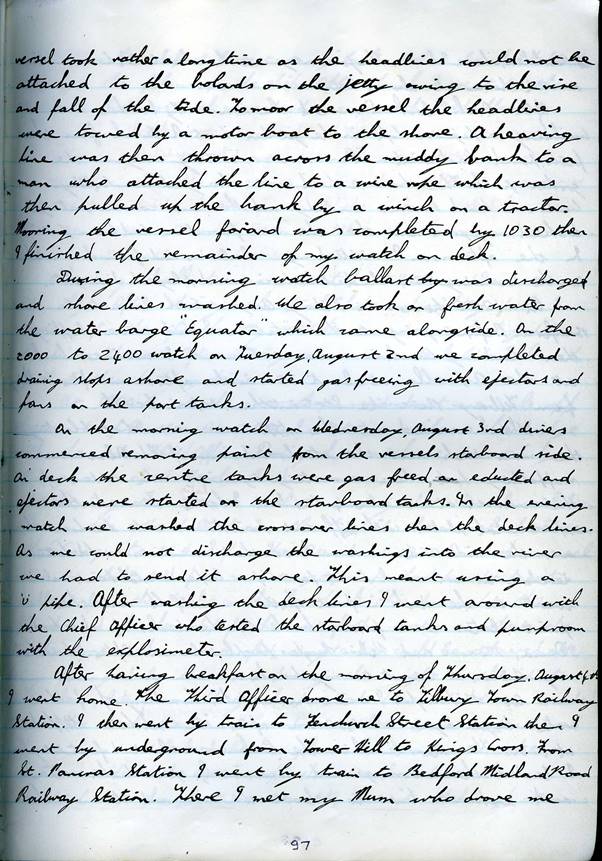 vessel took rather a long time as the headlines could not be
attached to the bolards on the jetty owing to the rise
and fall of the tide. To moor the vessel the headlines
were towed by a motor boat to the shore. A heaving
line was then thrown across the muddy bank to a
man who attached the line to a wire rope which was
then pulled up the bank by a winch on a tractor.
Mooring the vessel forard was completed by 1030 then
I finished the remainder of my watch on deck.
During the morning watch ballast was discharged
and shore lines washed. We also took on fresh water from
the water barge "Equator" which came alongside. On the
2000 to 2400 watch on Tuesday, August 2nd we completed
draining slops ashore and started gas freeing with ejectors and
fans on the port tanks.
On the morning watch on Wednesday, August 3rd divers
commenced removing paint from the vessels starboard side.
On deck the centre tanks were gas freed an educted and
ejectors were started on the starboard tanks. In the evening
watch we washed the crossover lines then the deck lines.
As we could not discharge the washings into the river
we had to send it ashore. This meant using a
'U' pipe. After washing the deck lines I went around with
the Chief Officer who tested the starboard tanks and pumproom
with the explosimeter.
After having breakfast on the morning of Thursday, August 4th
I went home. The Third Officer drove me to Tilbury Town Railway
Station. I then went by train to Fenchurch Street Station then I
went by underground from Tower Hill to Kings Cross. From
St. Pancras Station I went by train to Bedford Midland Road
Railway Station. There I met my Mum who drove me
97